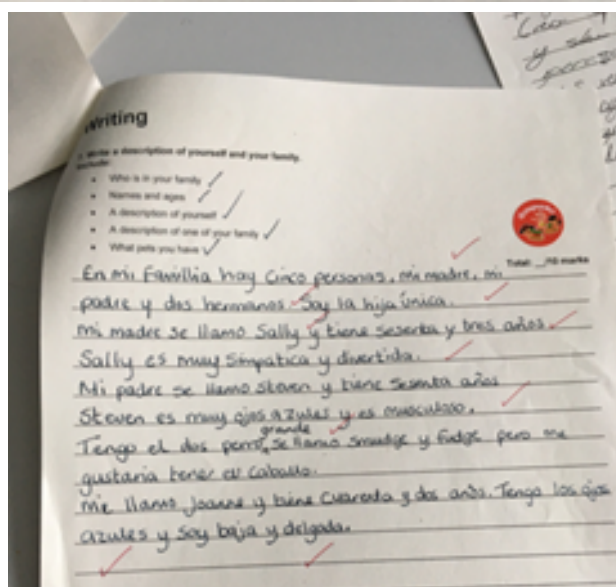 Writing
Write a description of yourself and your family.
Include:
Who is in your family
Names and ages
A description of yourself
A description of one of your family
What pets you have
Total: __/10 marks
En mi Famillia hay Cinco personas, mi madre, mi
padre y dos hermanos. Soy la hija única.
mi madre se llamo Sally y tiene sesenta y tres años.
Sally es muy simpatica y divertida.
Mi padre se llamo Steven y tiene sesenta años
Steven es muy ojos azules y es musculoso.
grande
Tengo el dos perro, se llamo Smudge y Fudge pero me
gustaria tener el caballo.
me llamo Joanne y tiene cuarenta y dos años. Tengo los ojos
azules y soy baja y delgada.